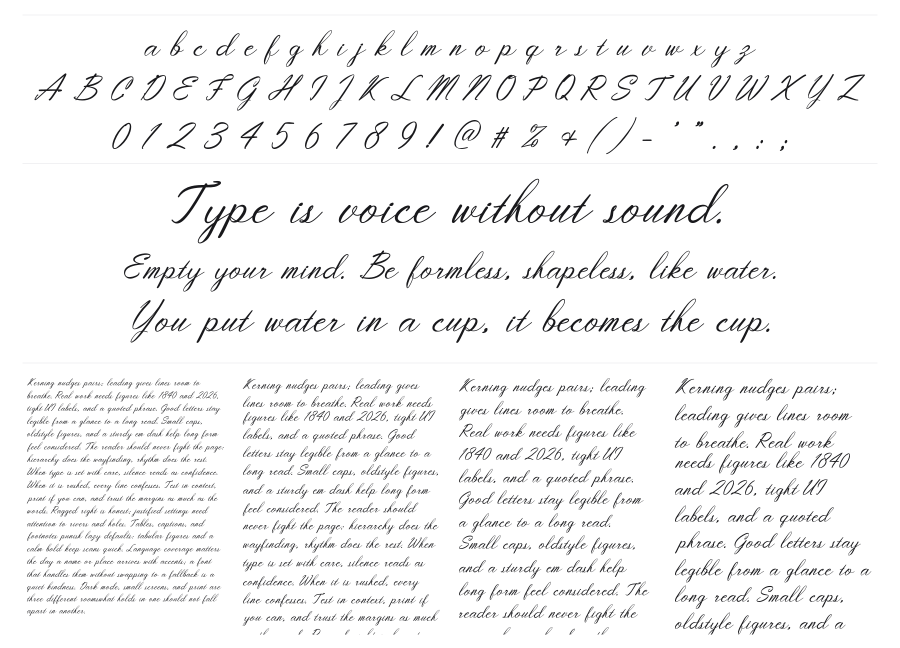 a b c d e f g h i j k l m n o p q r s t u v w x y z
A B C D E F G H I J K L M N O P Q R S T U V W X Y Z
0 1 2 3 4 5 6 7 8 9 ! @ # % & ( ) - ' " . , : ;
Type is voice without sound.
Empty your mind. Be formless, shapeless, like water.
You put water in a cup, it becomes the cup.
Kerning nudges pairs; leading gives lines room to
breathe. Real work needs figures like 1840 and 2026,
tight UI labels, and a quoted phrase. Good letters stay
legible from a glance to a long read. Small caps,
oldstyle figures, and a sturdy em dash help long form
feel considered. The reader should never fight the page;
hierarchy does the wayfinding, rhythm does the rest.
When type is set with care, silence reads as confidence.
When it is rushed, every line confesses. Test in context,
print if you can, and trust the margins as much as the
words. Ragged right is honest; justified settings need
attention to rivers and holes. Tables, captions, and
footnotes punish lazy defaults; tabular figures and a
calm bold keep scans quick. Language coverage matters
the day a name or place arrives with accents; a font
that handles them without swapping to a fallback is a
quiet kindness. Dark mode, small screens, and print are
three different rooms; what holds in one should not fall
apart in another.
Kerning nudges pairs; leading gives
lines room to breathe. Real work needs
figures like 1840 and 2026, tight UI
labels, and a quoted phrase. Good
letters stay legible from a glance to a
long read. Small caps, oldstyle figures,
and a sturdy em dash help long form
feel considered. The reader should
never fight the page; hierarchy does the
wayfinding, rhythm does the rest. When
type is set with care, silence reads as
confidence. When it is rushed, every
line confesses. Test in context, print if
you can, and trust the margins as much
Kerning nudges pairs; leading
gives lines room to breathe.
Real work needs figures like
1840 and 2026, tight UI
labels, and a quoted phrase.
Good letters stay legible from
a glance to a long read.
Small caps, oldstyle figures,
and a sturdy em dash help
long form feel considered. The
reader should never fight the
Kerning nudges pairs;
leading gives lines room
to breathe. Real work
needs figures like 1840
and 2026, tight UI
labels, and a quoted
phrase. Good letters stay
legible from a glance to a
long read. Small caps,
oldstyle figures, and a